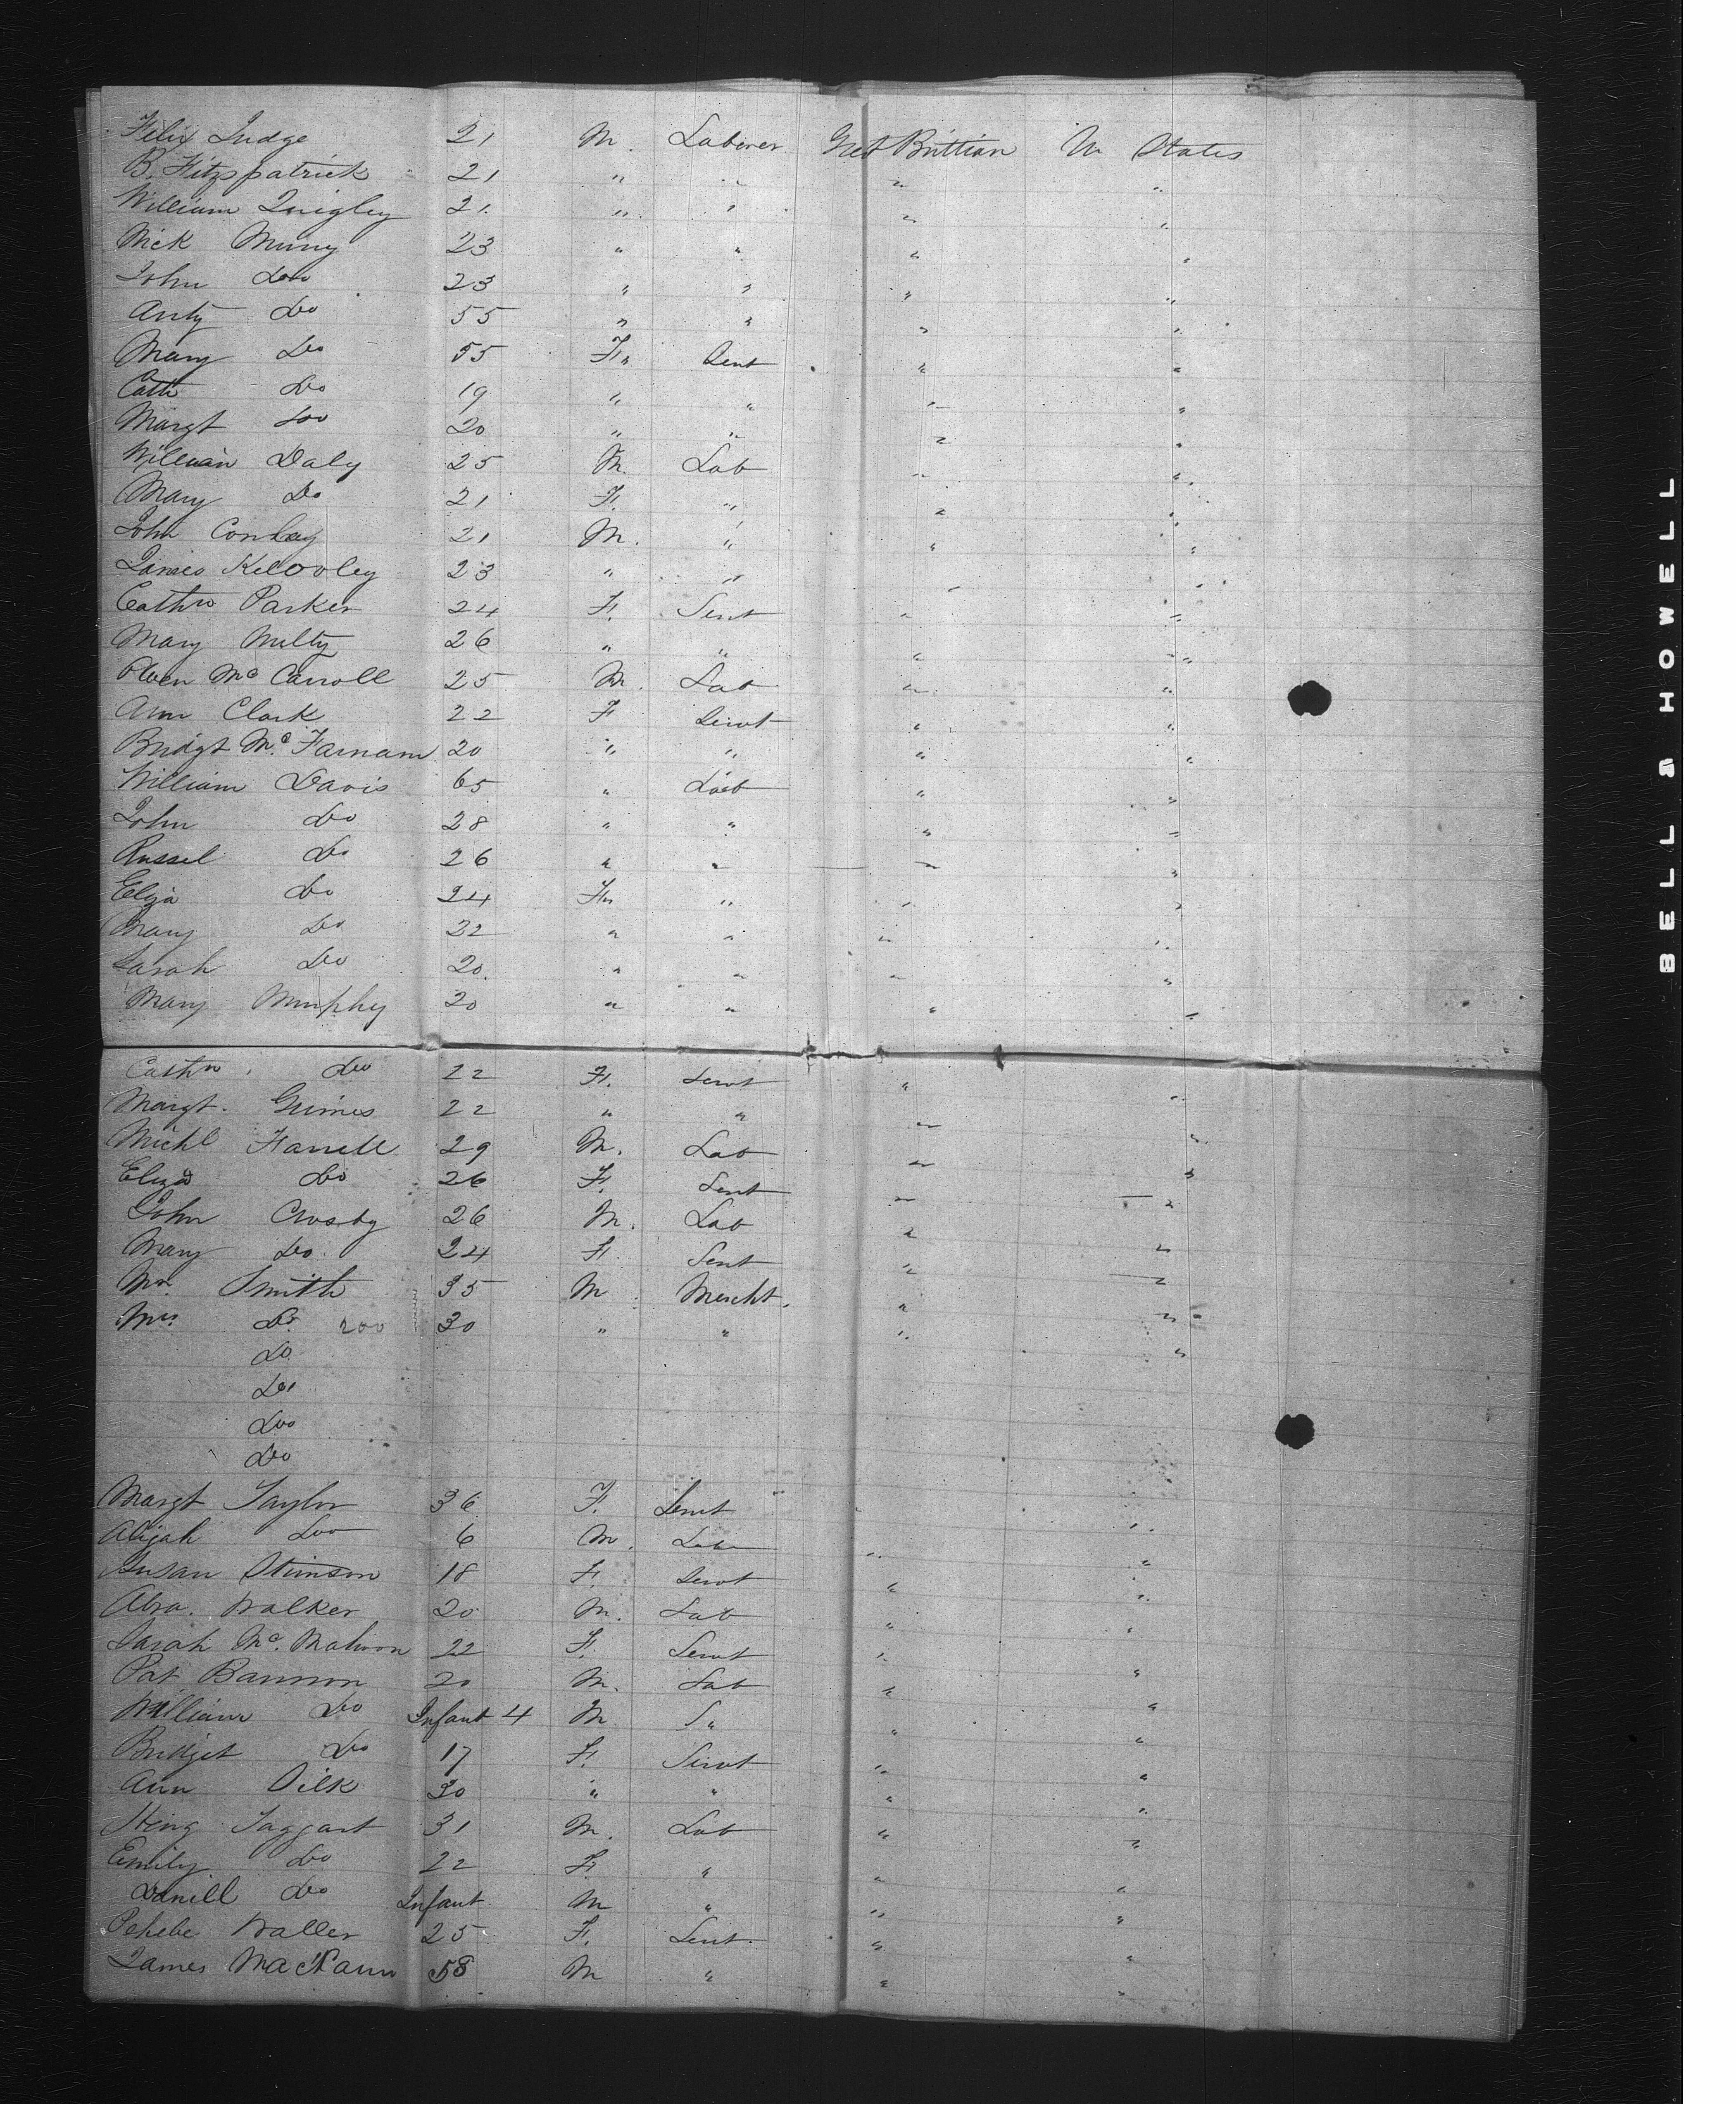 Felix Judge 21 M. Laborer Gret Brittian U States
B. Fitzpatrick 21 " " " "
William Quigley 21. " " " "
Mick Murry 23 " " " "
John Do 23 " " " "
Anty Do 55 " " " "
Mary Do 55 F " Sevt " "
Cath Do 19 " " " "
Margt Do 20 " " " "
William Daly 25 M. Lab " "
Mary Do 21 F. " " "
John Conley 21 M. " " "
James 23 " " " "
Cathn Parker 24 F. Sevt " "
Mary 26 " " " "
Owen Mc Carroll 25 M. Lab " "
Ann Clark 22 F Servt " "
Bridgt Mc Farnam 20 " " " "
William Davis 65 " Lab " "
John Do 28 " " " "
Russel Do 26 " " " "
Eliza Do 24 F " " "
Mary Do 22 " " " "
Sarah Do 20. " " " "
Mary Murphy 20 " " " "
Cathn. Do 22 F. Servt " "
Margt. Grimes 22 " " " "
Michl Farrell 29 M. Lab " "
Eliza Do 26 F. Sevt " "
John Crosby 26 M. Lab " "
Mary Do. 24 F. Sevt " "
Mr. Smith 35 M Mercht. " "
Mrs. Do. 200 30 " " " "
Do "
Do
Do
Do
Margt Taylor 36 F. Servt
Abijah Do 6 M. Lab "
Susan Stimson 18 F. Servt " "
Abra. Walker 20 M. Lab " "
Sarah Mc. Mahon 22 F. Servt " "
Pat Bannon 20 M. Lab " "
William Do Infant 4 M S " " "
Bridget Do 17 F. Servt " "
Ann Dilk 30 " " " "
Henry Taggart 31 M. Lab " "
Emily Do 22 F. " " "
Daniell Do Infant M " " "
Pehebe Waller 25 F. Sevt. " "
James 58 M " " "
BELL & HOWELL